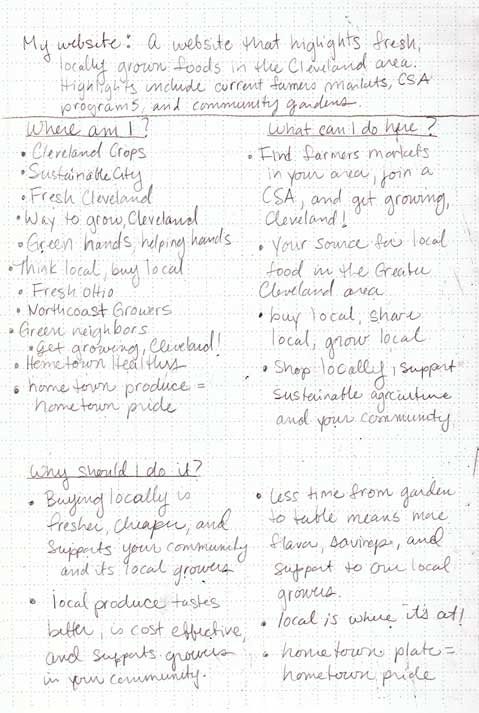 My website: A website that highlights fresh,
locally grown foods in the Cleveland area.
Highlights include current famers markets, CSA
programs, and community gardens.
Where am I?
• Cleveland Crops
• Sustainable City
• Fresh Cleveland
• Way to grow, Cleveland
• Green hands, helping hands
• Think local, buy local
• Fresh Ohio
• Northcoast Growers
• Green neighbors
• Get growing, Cleveland!
• Hometown Healthys
• hometown produce =
hometown pride
What can I do here?
• Find farmers markets
in your area, join a
CSA, and get growing,
Cleveland!
• Your source for local
food in the Greater
Cleveland area
• buy local, share
local, grow local
• Shop locally, support
sustainable agriculture
and your community
Why should I do it?
• Buying locally is
fresher, cheaper, and
supports your community
and its local growers
• local produce tastes
better, is cost effective,
and supports growers
in your community.
• less time from garden
to table means more
flavor, savings, and
support to our local
growers.
• local is where it's at!
• hometown plate =
hometown pride